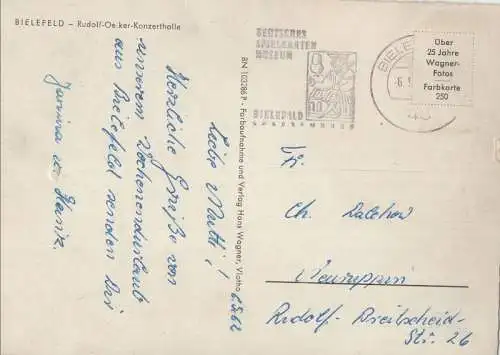 BIELEFELD – Rudolf-Oetker-Konzerthalle
6.5.62
Liebe Mutti!
Herzliche Grüße von
unserem Wochenendurlaub
aus Bielefeld senden Dir
Heinz.
BN 102286 P - Farbaufnahme und Verlag Hans Wagner, Vlotho
DEUTSCHES
SPIELKARTEN
MUSEUM
BIELEFELD
BIELEF
-6.5
Über
25 Jahre
Wagner-
Fotos
Farbkarte
250
Fr.
Ch. Dalchow
Neuruppin
Rudolf-Breitscheid-
Str. 26